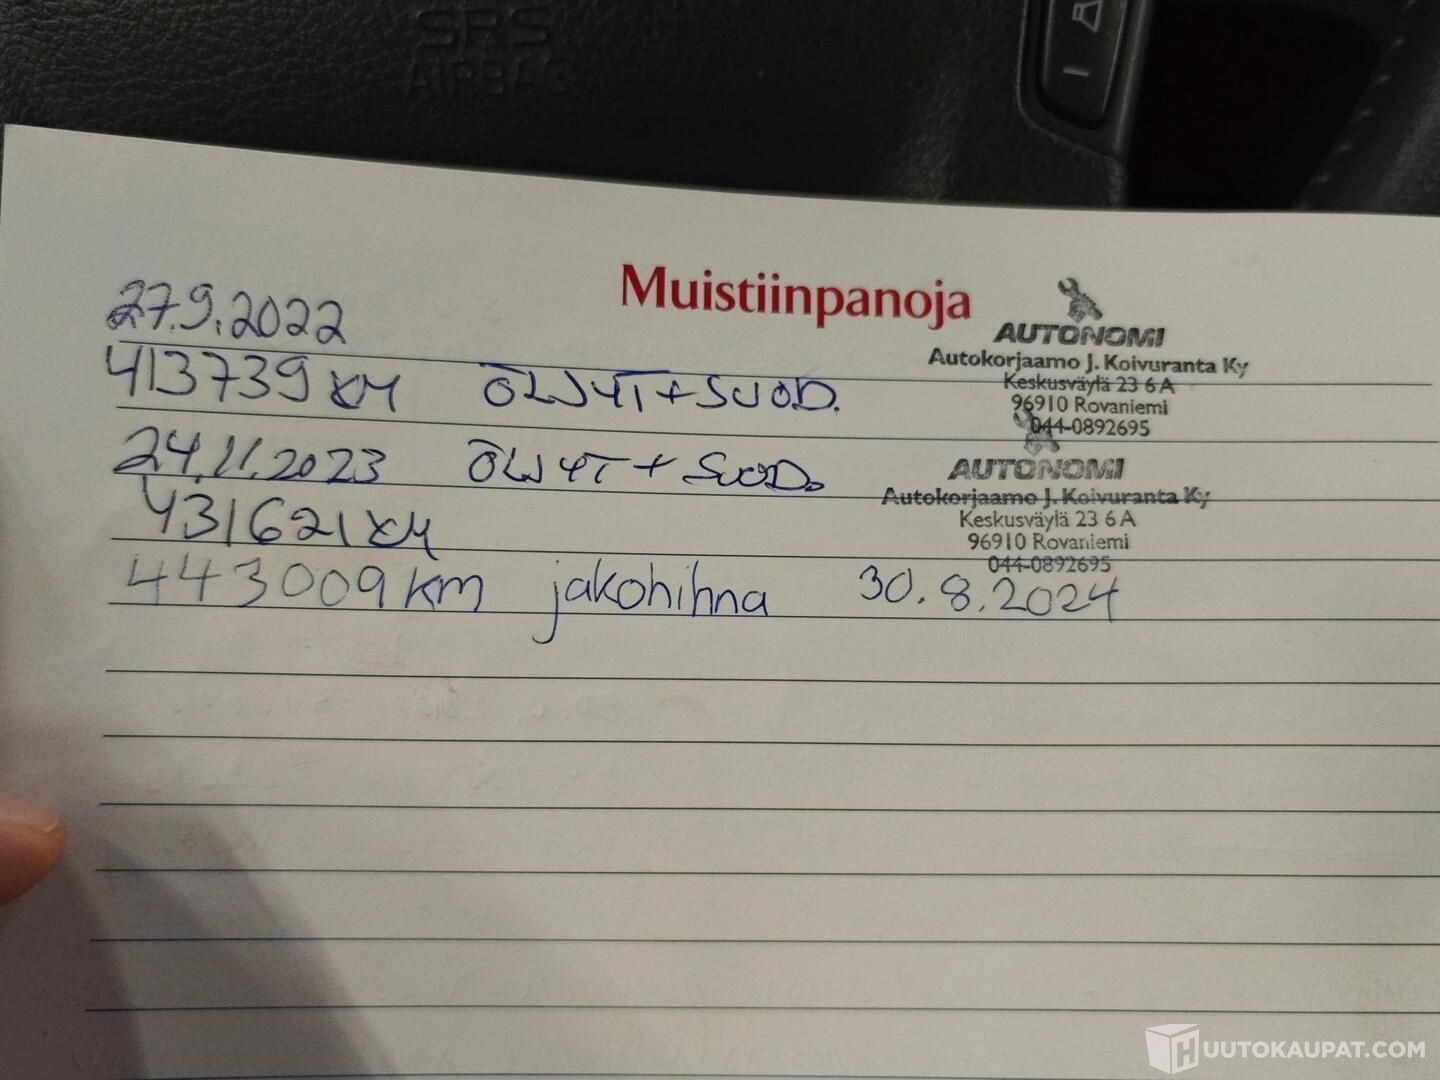 SRS
AIRBAG
Muistiinpanoja
27.9.2022
413739 KM ÖLJYT + SUOD.
AUTONOMI
Autokorjaamo J. Koivuranta Ky
Keskusväylä 23 6 A
96910 Rovaniemi
044-0892695
24.11.2023 ÖLJYT + SUOD.
431621 KM
AUTONOMI
Autokorjaamo J. Koivuranta Ky
Keskusväylä 23 6 A
96910 Rovaniemi
044-0892695
443009 km jakohihna 30.8.2024
HUUTOKAUPAT.COM